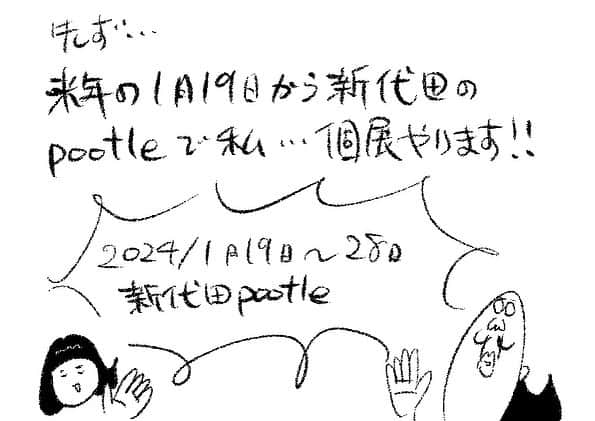 まず…
来年の1月19日から新代田の
pootleで私…個展やります!!
2024/1月19日〜28日
新代田pootle